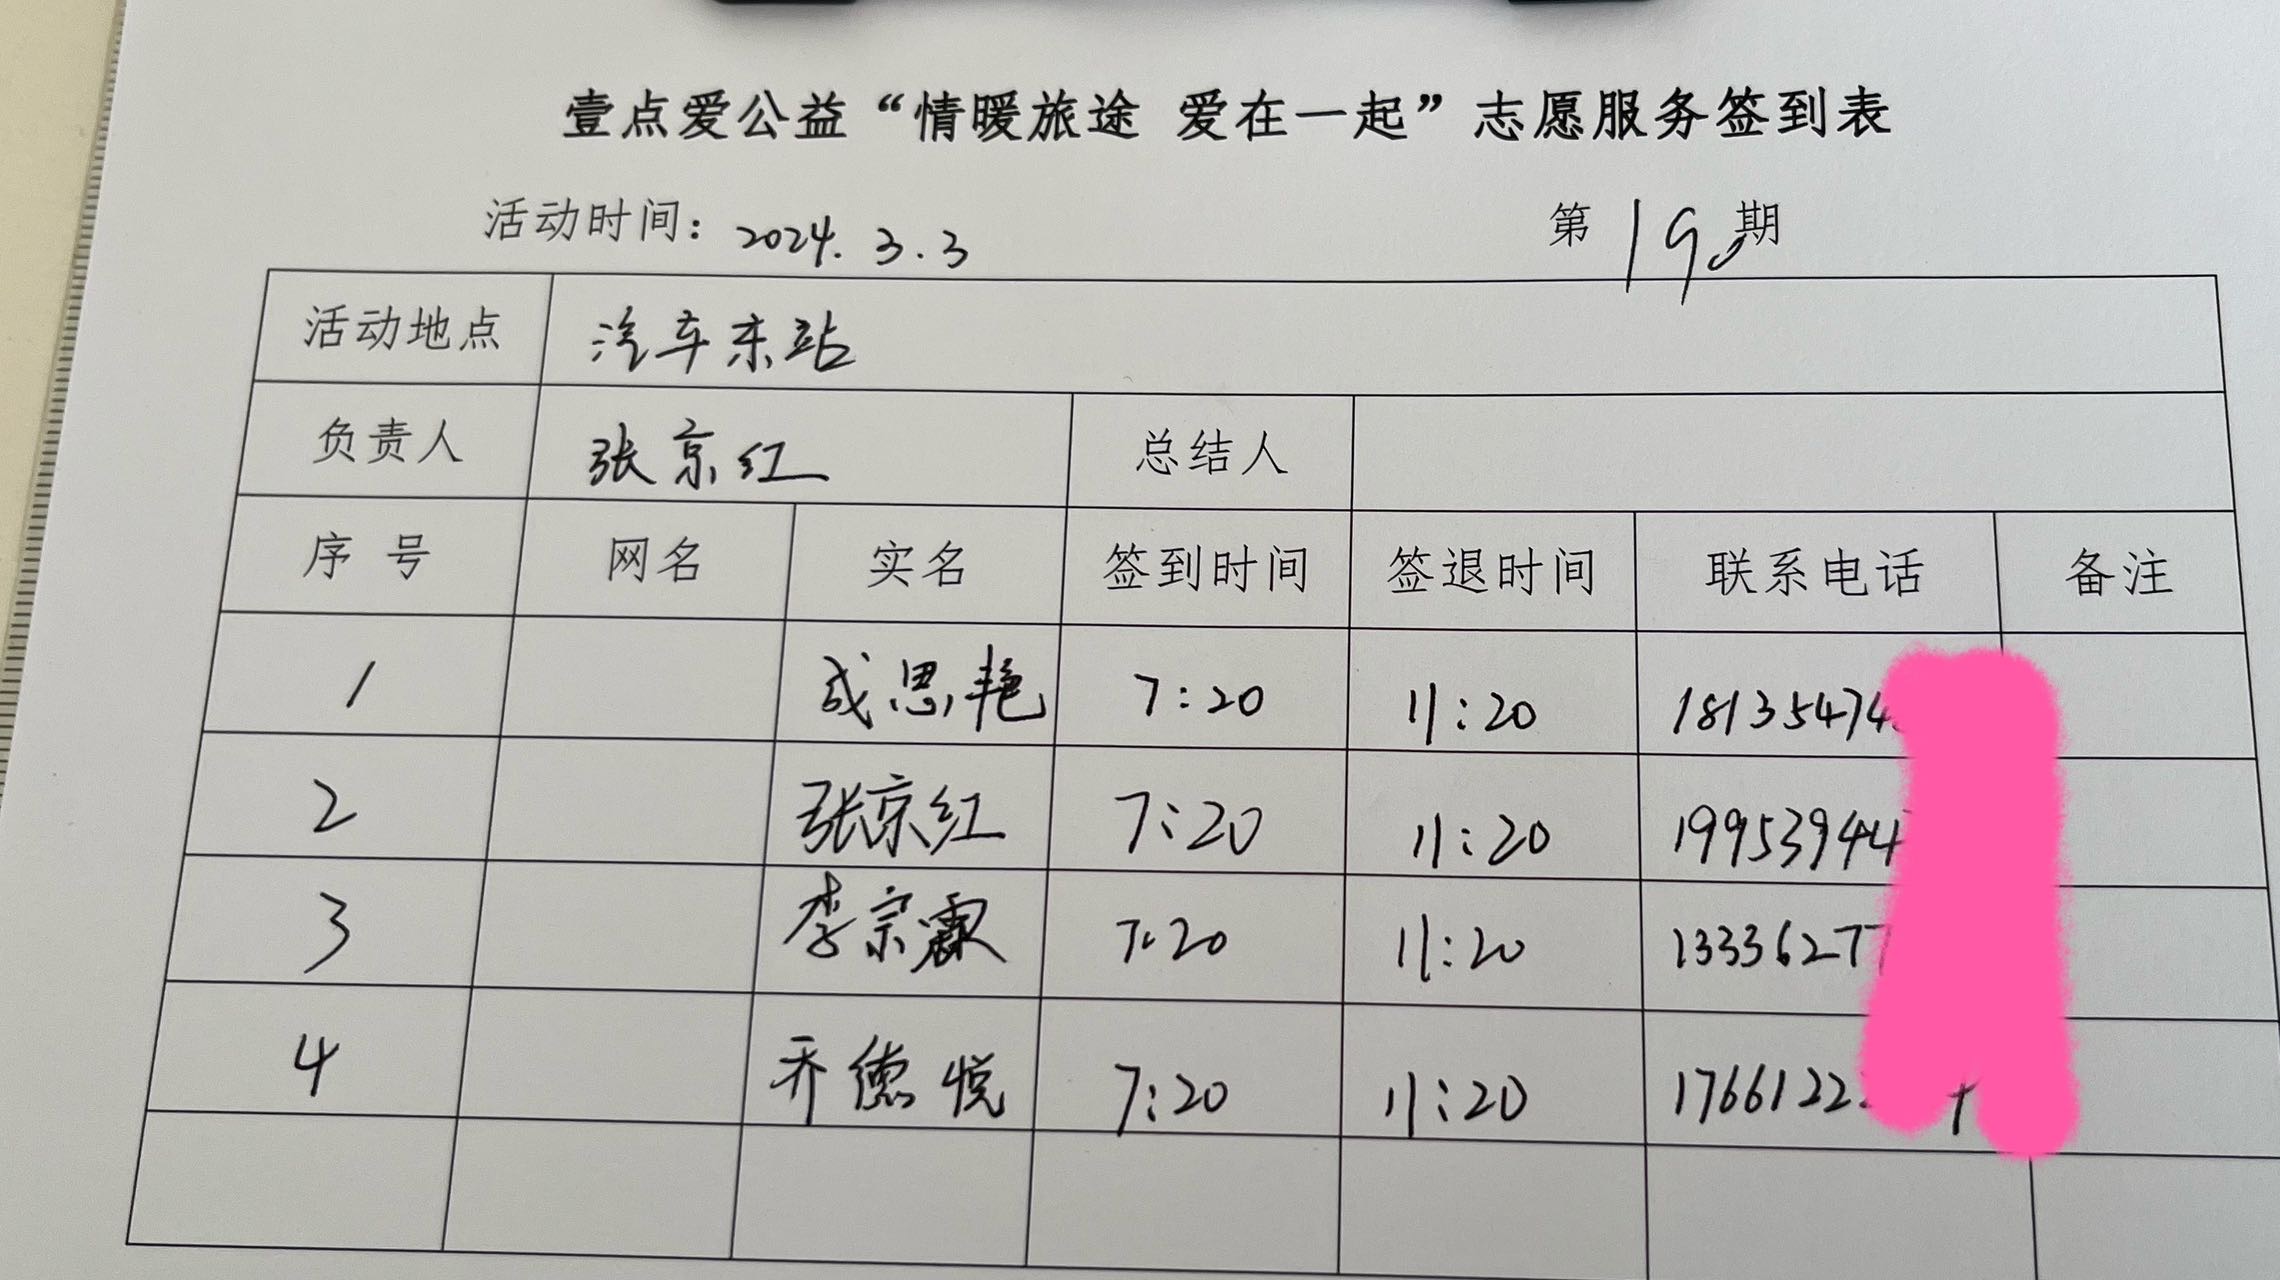 壹点爱公益“情暖旅途 爱在一起”志愿服务签到表
活动时间：2024.3.3 第19期
活动地点 汽车东站
负责人 张京红 总结人
序号 网名 实名 签到时间 签退时间 联系电话 备注
1 成思艳 7:20 11:20 18135474
2 张京红 7:20 11:20 199539444
3 李宗霖 7:20 11:20 13336277
4 乔德悦 7:20 11:20 1766122